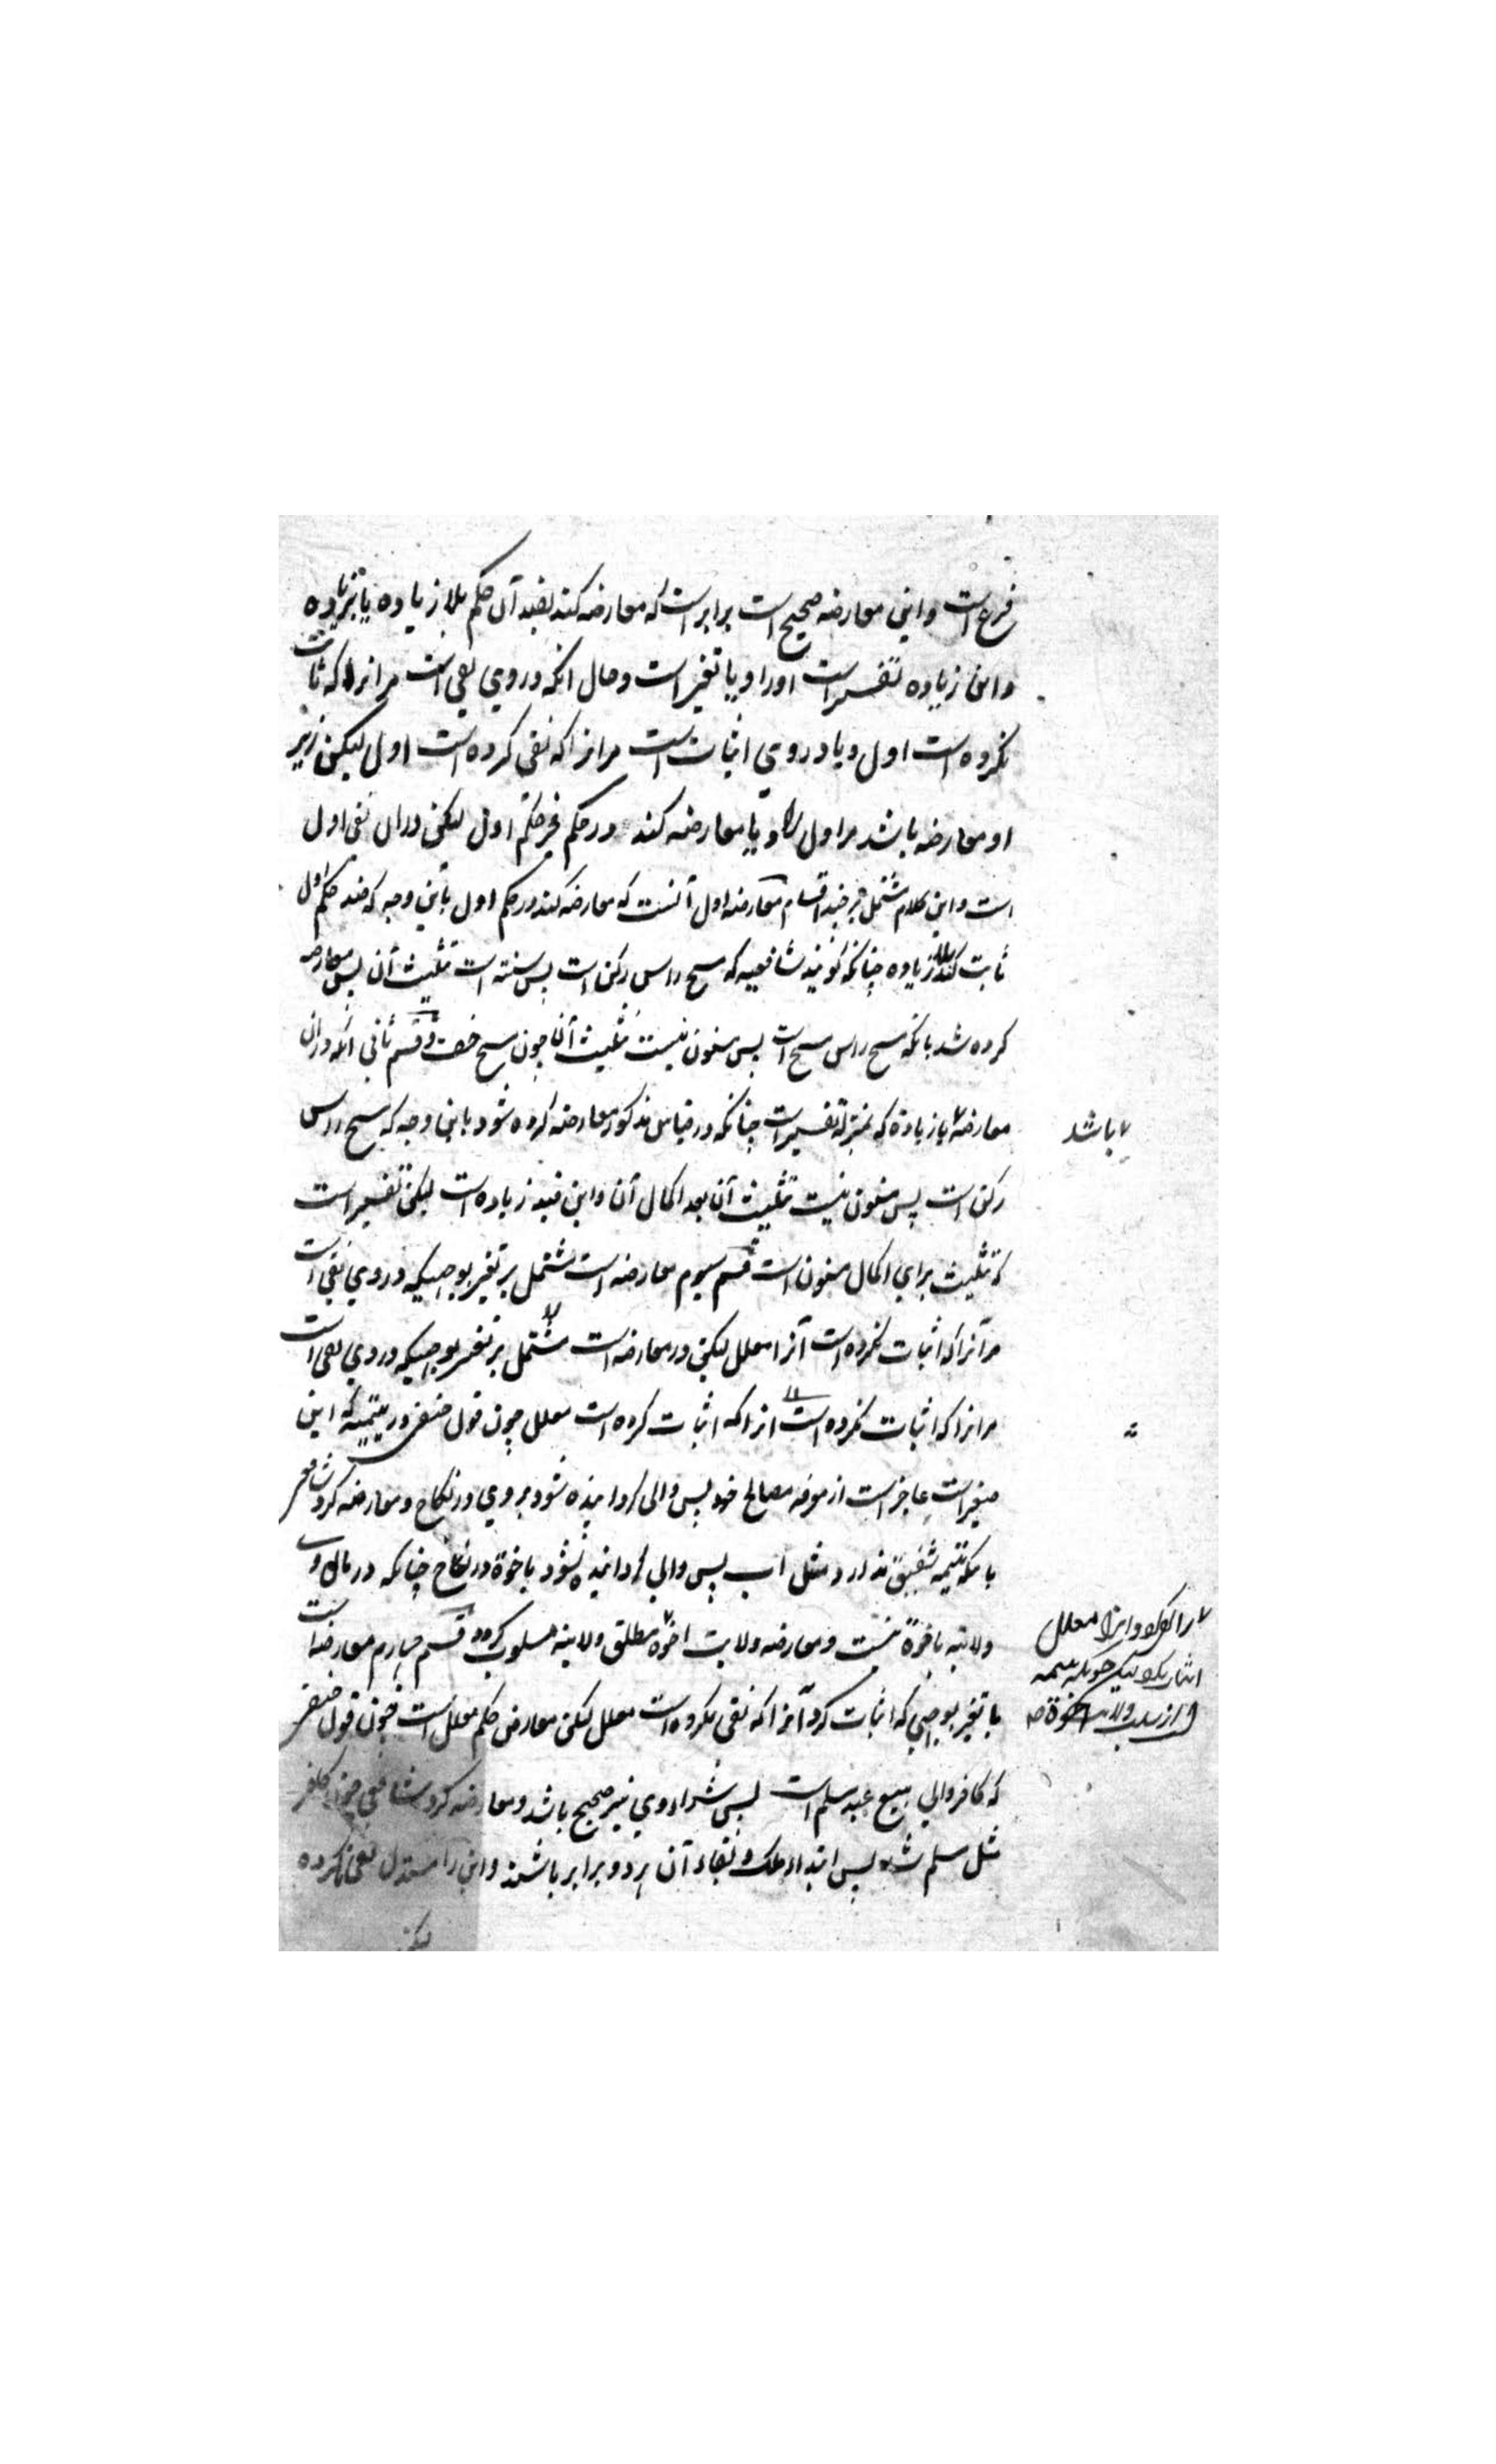 فرع است و این معارضه صحیح است برابر است که معارضه کند بضد آن حکم بلا زیاده یا بزیاده
و این زیاده تفسیر است اورا و یا تغیر است و حال انکه دروی نفی است مر انرا که ثابت
نکرده است اول و یا دروی اثبات است مر انرا که نفی کرده است اول لیکن زیر
او معارضه باشد مر اول را و یا معارضه کند در حکم غیر حکم اول لیکن دران نفی اول
است و این کلام مشتمل بر چند اقسام معارضه اول آنست که معارضه کند در حکم اول باین وجه که ضد حکم اول
ثابت کند بلا زیاده چنانکه گویند شافعیه که مسح راس رکن است پس سنته است تثلیث آن پس معارضه
کرده شد بانکه مسح راس مسح است پس مسنون نیست تثلیث آن چون مسح خف و قسم ثانی انکه دران
معارضه بازیادة که بمنزله تفسیر است چنانکه در قیاس مذکور معارضه کرده شود باین وجه که مسح راس
باشد
رکن است پس مسنون نیست تثلیث آن بعد اکمال آن و این قید زیاده است لیکن تفسیر است
که تثلیث برای اکمال مسنون است قسم سیوم معارضه است مشتمل بر تغیر بوجهیکه دروی نفی است
مر آنرا که اثبات نکرده است آنرا معلل لیکن در معارضه است مشتمل بر تغیر بوجهیکه دروی نفی است
مر انرا که اثبات نکرده است انرا که اثبات کرده است معلل چون قول حنفی در یتیمیه که این
صغیر است عاجز است از معرفه مصالح خود پس والی گردانیده شود بروی در نکاح و معارضه کرد شافعی
بانکه یتیمه شفیق ندارد مثل اب پس والی گردانیده نشود باخوة در نکاح چنانکه در مال وی
ولایته باخوة نیست و معارضه ولایت اخوة مطلق ولایته مسلوب کرد و قسم چهارم معارضه است
را و انرا معلل
با تغیر بوجهی که اثبات کرد آنرا که نفی نکرده است معلل لیکن معارض حکم معلل است چون قول حنفی
که کافر والی بیع عبد مسلم است پس شراء وی نیز صحیح باشد و معارضه کرد شافعی چون کافر
مثل مسلم شد پس ابتداء ملک و بقاء آن هر دو برابر باشند و این را مستدل نفی نکرده
لیکن